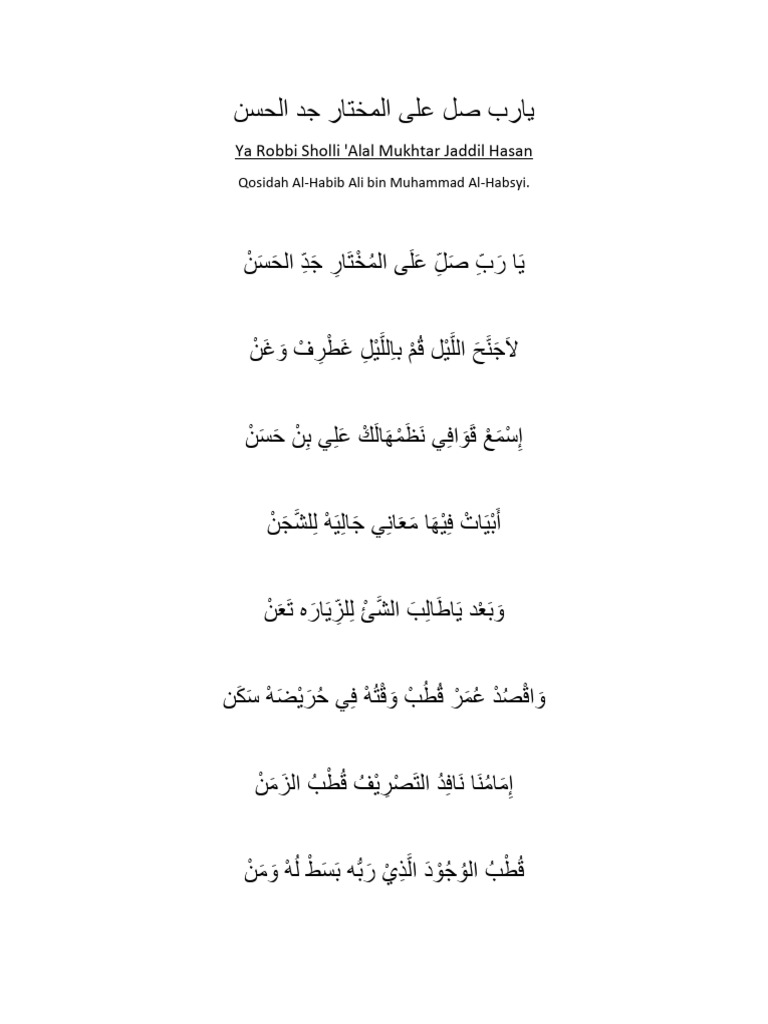 يارب صل على المختار جد الحسن
Ya Robbi Sholli 'Alal Mukhtar Jaddil Hasan
Qosidah Al-Habib Ali bin Muhammad Al-Habsyi.
يَا رَبِّ صَلِّ عَلَى المُخْتَارِ جَدِّ الحَسَنْ
لاَجَنَّحَ اللَّيْل قُمْ بِاللَّيْلِ غَطْرِفْ وَغَنْ
إِسْمَعْ قَوَافِي نَظَمْهَالَكْ عَلِي بِنْ حَسَنْ
أَبْيَاتْ فِيْهَا مَعَانِي جَالِيَهْ لِلشَّجَنْ
وَبَعْد يَاطَالِبَ الشَّئْ لِلزِّيَارَه تَعَنْ
وَاقْصُدْ عُمَرْ قُطُبْ وَقْتُهْ فِي حُرَيْضَهْ سَكَن
إِمَامُنَا نَافِدُ التَصْرِيْفُ قُطْبُ الزَمَنْ
قُطْبُ الوُجُوْدَ الَّذِيْ رَبُّه بَسَطْ لُهْ وَمَنْ